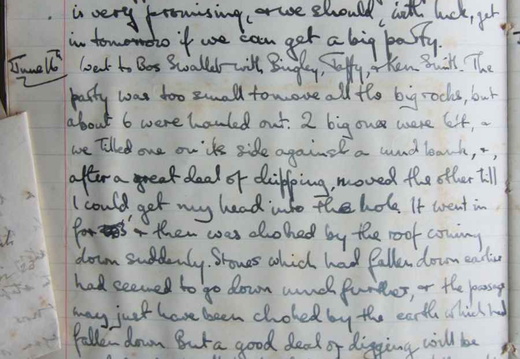 is very promising, & we should, with luck, get
in tomorrow if we can get a big party.
June 16th
Went to Bos Swallet with Bingley, Taffy, & Ken Smith. The
party was too small to move all the big rocks, but
about 6 were hauled out. 2 big ones were left, &
we tilted one on its side against a mud bank, &,
after a great deal of chipping, moved the other till
I could get my head into the hole. It went in
for & then was choked by the roof coming
down suddenly. Stones which had fallen down earlier
had seemed to go down much further, & the passage
may just have been choked by the earth which had
fallen down. But a good deal of digging will be